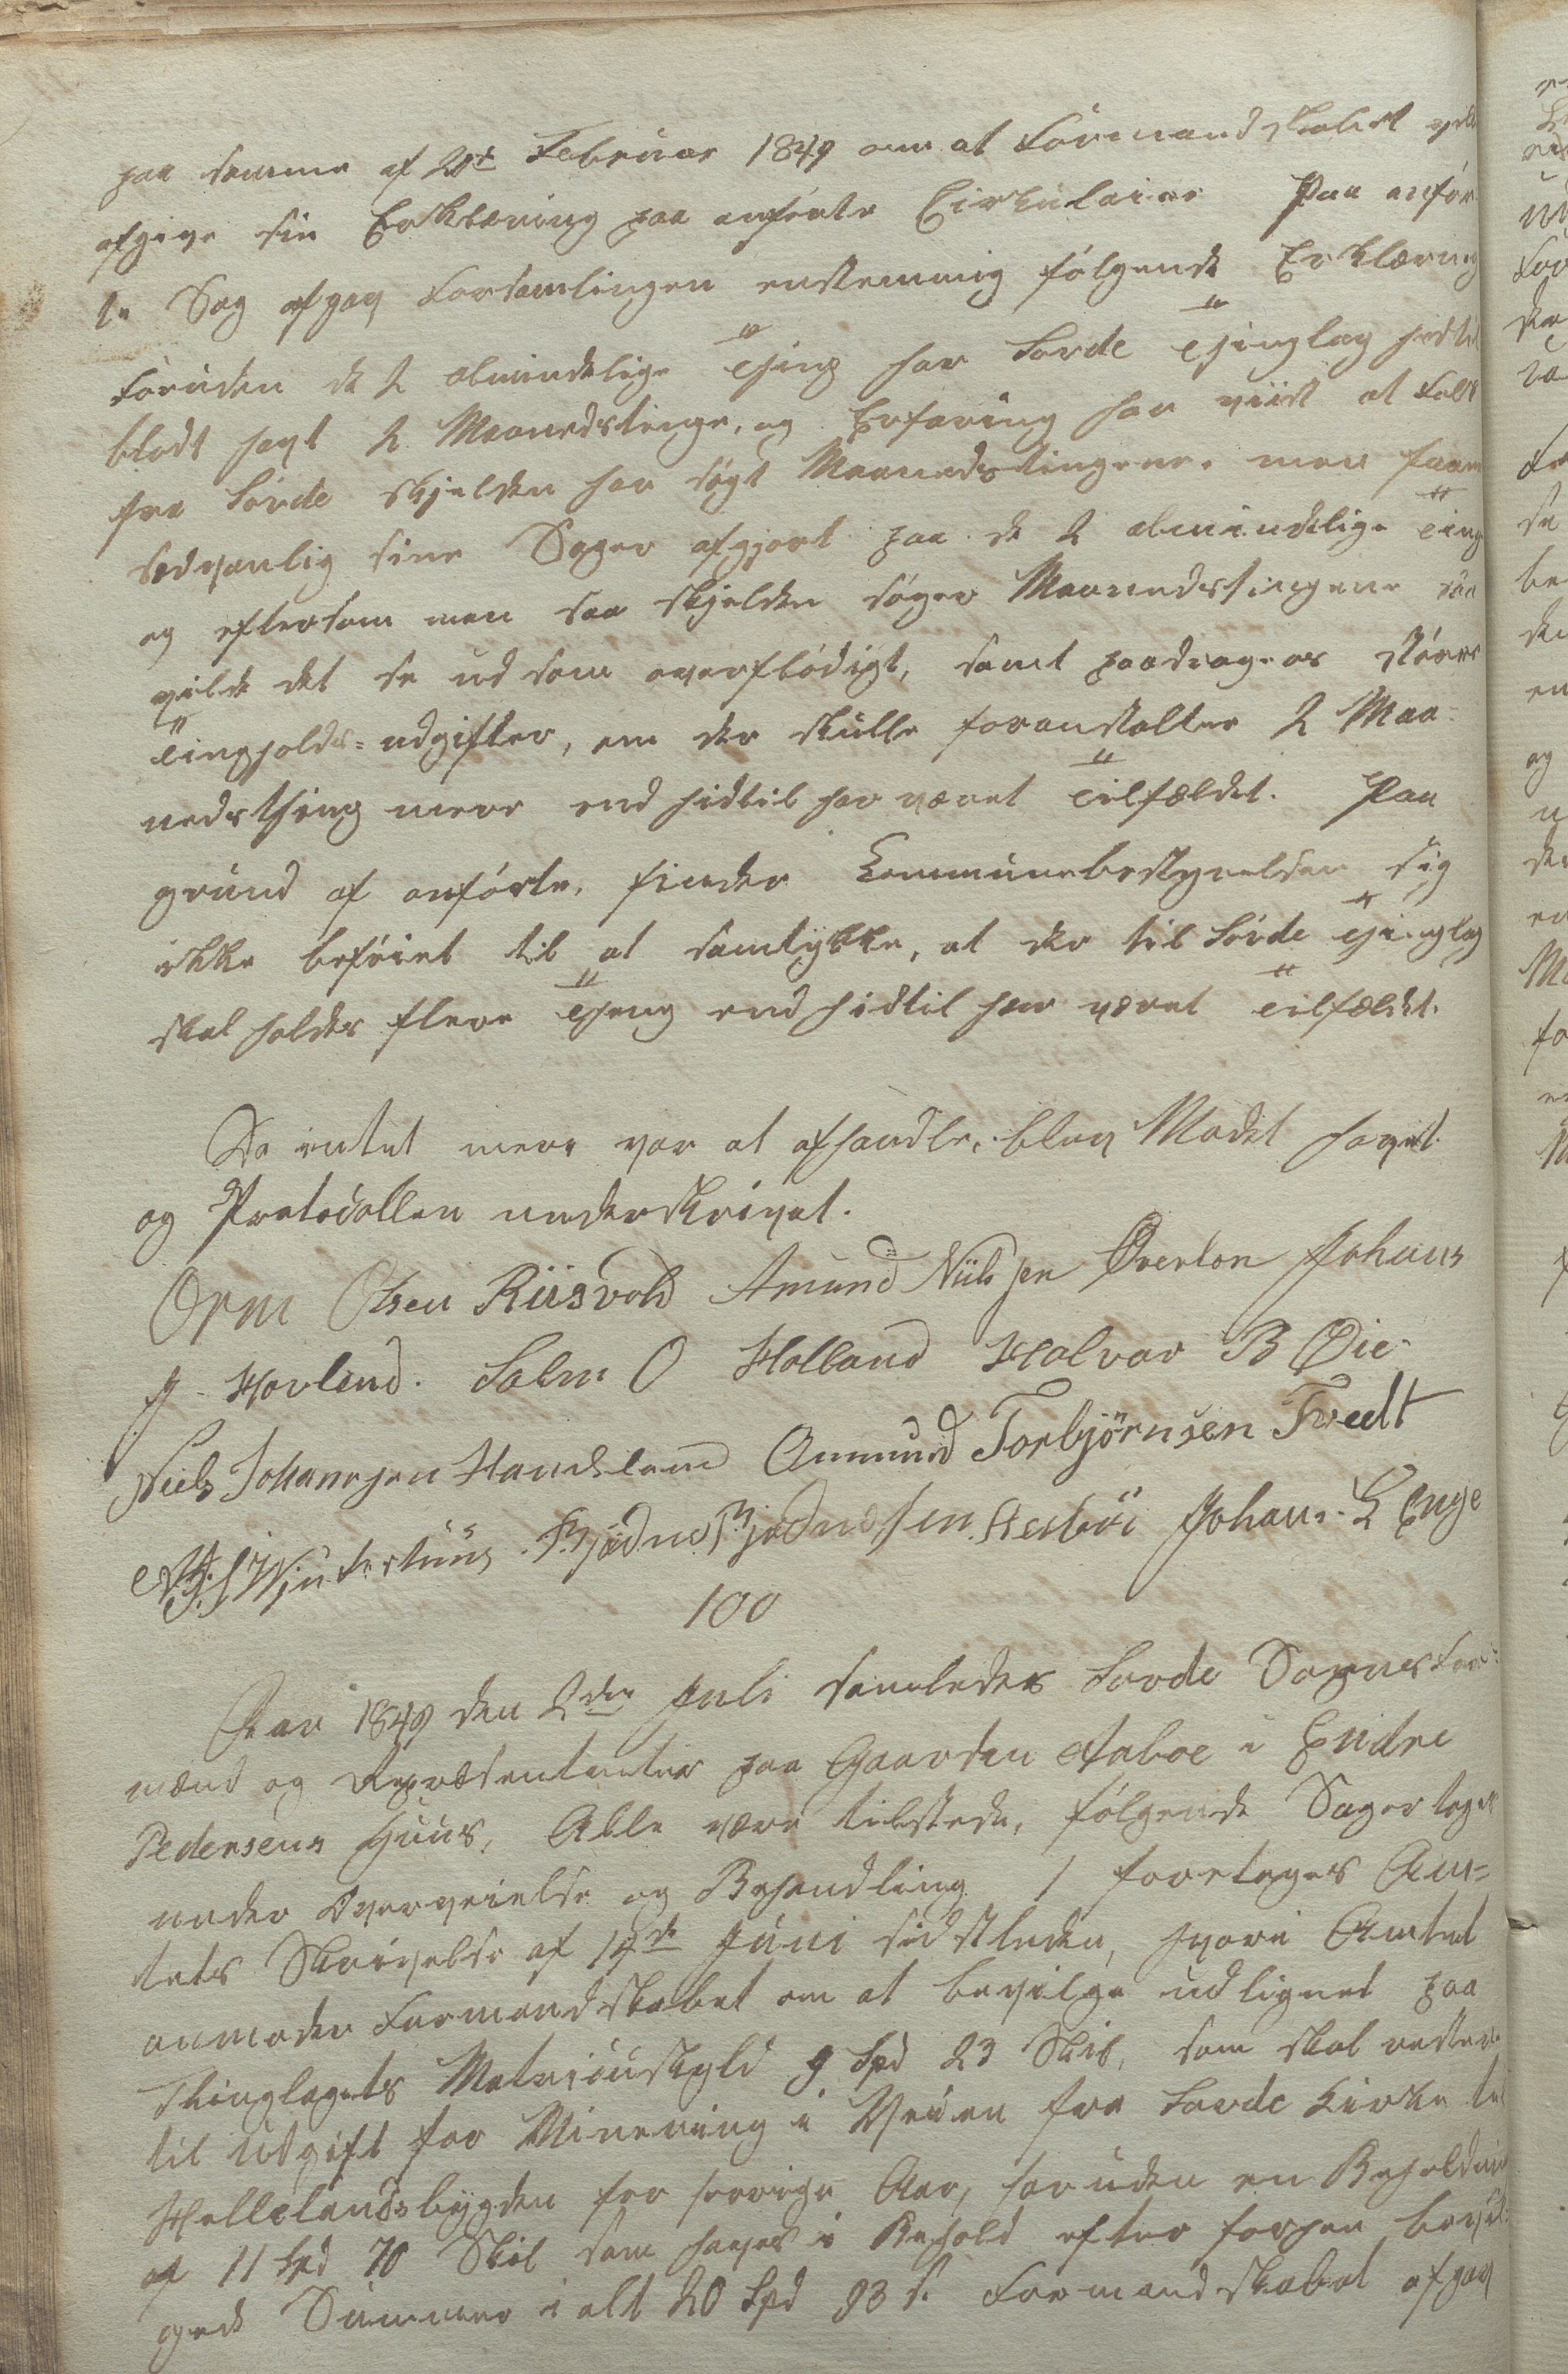 paa samme af 20de Februar 1849 om at Formandskabet vilde
afgive sin Erklæring paa anførte Cirkulaire Paa anfør-
te Sag afgav Forsamlingen enstemmig følgende Erklæring
Foruden de 2 almindelige Thing har Sovde Thinglag hidtil
blodt havt 2 Maanedstinge, og Erfaring har viist at Folk
fra Sovde skjelden har søgt Maanedstingene, men faaer
sedvanlig sine Sager afgjort paa de 2 almindelige Ting
og eftersom man saa skjelden søger Maanedstingene saa
vilde det se ud som overflødigt, samt paadrages større
Tingholds-udgifter, om der skulle foranstalter 2 Maa-
nedsthing mere end hidtil har været Tilfældet. Paa
grund af anførte, finder Communebestyrelsen sig
ikke beføiet til at samtykke, at der til Sovde Thinglag
skal holdes flere Thing end hidtil har været Tilfældet.
Da intet mere var at afhandle, blev Mødet hævet
og Protocollen underskrivet.
Orm Olsen Riisvold Amund Niilssen Øverton Johans
J. Hovland. Salm O Holland Halvar B Øie
Niels Johannesen Handeland Ommund Torbjörnsen Tvedt
Vintertuun Bjødne Bjødnesen Aesbøi Johans L Enge
100
Aar 1849 den 2den Juli samledes Sovde Sognes For-
mænd og Repræsentanter paa Gaarden Aaboe i Endre
Pedersens Huus, Alle være tilstede, følgende Sager toges
under Overveielse og Behandling 1 foretages Am-
tets Skrivelse af 14de Juni sidstleden, hvori Amtet
anmoder Formandskabet om at bevilge udlignet paa
Thinglagets Matrikuskyld 9 Spd 23 Skil, som skal restere
til Udgift for Minering i Veien fra Sovde Kirke til
Hellelandsbygden for forrige Aar, foruden en Beholdning
af 11 Spd 70 Skil som haves i Behold efter forhen bevil-
gede Summer i alt 20 Spd 93 s. Formandskabet afgav